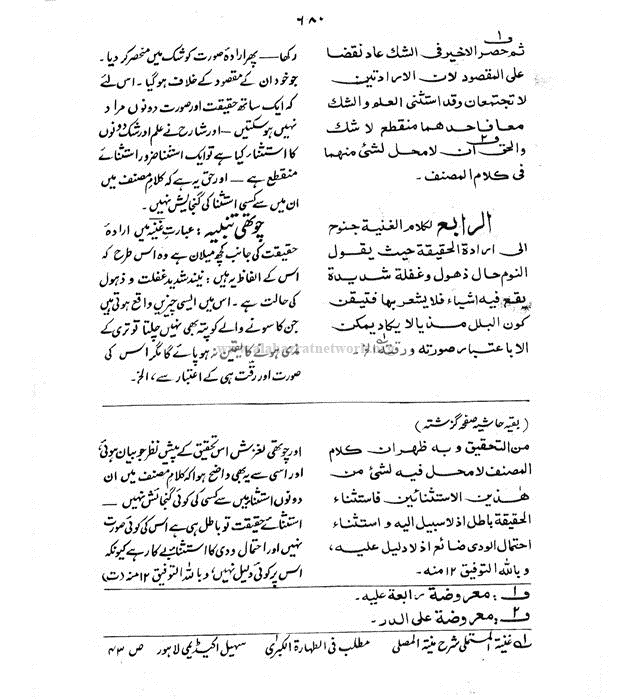 ٦٨٠
ثم حصر الاخير فی الشك عاد نقضا
علی المقصود لان الارادتین
لا تجتمعان وقد استثنی العلم والشك
معا فاحدهما منقطع لا شك
والحق ان لا محل لشئ منهما
فی کلام المصنف۔
الرابع لکلام الغنیة جنوح
الی ارادة الحقیقة حیث یقول
النوم حال ذهول وغفلة شدیدة
یقع فیه اشیاء فلا یشعر بها فتیقن
کون البلل مذیا لا یکاد یمکن
الا باعتبار صورته ورقته الخ
رکھا— پھر ارادۂ صورت کو شک میں منحصر کر دیا۔
جو خود ان کے مقصود کے خلاف ہوگیا۔ اس لئے
کہ ایک ساتھ حقیقت اور صورت دونوں مراد
نہیں ہوسکتیں— اور شارح نے علم اور شک دونوں
کا استثنار کیا ہے تو ایک استثنا ضرور استثنائے
منقطع ہے— اور حق یہ ہے کہ کلامِ مصنف میں
ان میں سے کسی استثنا کی گنجایش نہیں۔
چوتھی تنبیہ : عبارتِ غنیہ میں ارادۂ
حقیقت کی جانب کچھ میلان ہے وہ اس طرح کہ
اس کے الفاظ یہ ہیں : نیند شدید غفلت و ذہول
کی حالت ہے۔ اس میں ایسی چیزیں واقع ہوتی ہیں
جن کا سونے والے کو پتہ بھی نہیں چلتا تو تری کے
مذی ہونے کا یقین نہ ہو پائے گا مگر اس کی
صورت اور رقّت ہی کے اعتبار سے، الخ۔
(بقیہ حاشیہ صفحہ گزشتہ)
من التحقیق وبه ظهر ان کلام
المصنف لا محل فیه لشئ من
هٰذین الاستثنائین فاستثناء
الحقیقة باطل اذ لا سبیل الیه و استثناء
احتمال الودی ضائع اذ لا دلیل علیه،
و بالله التوفیق ۱۲ منه۔
اور چوتھی لغزش اس تحقیق کے پیش نظر جو بیان ہوئی
اور اسی سے یہ بھی واضح ہوا کہ کلامِ مصنف میں ان
دونوں استثنا میں سے کسی کی کوئی گنجائش نہیں—
استثنائے حقیقت تو باطل ہی ہے اس کی کوئی صورت
نہیں اور احتمال ودی کا استثنا بے کار ہے کیونکہ
اس پر کوئی دلیل نہیں، و باللہ التوفیق ۱۲ منہ (ت)
ف۱ : معروضة رابعة علیه۔
ف۲ : معروضة علی الدر۔
۱؎ غنیۃ المستملی شرح منیۃ المصلی مطلب فی الطہارۃ الکبرٰی سہیل اکیڈیمی لاہور ص ۴۳